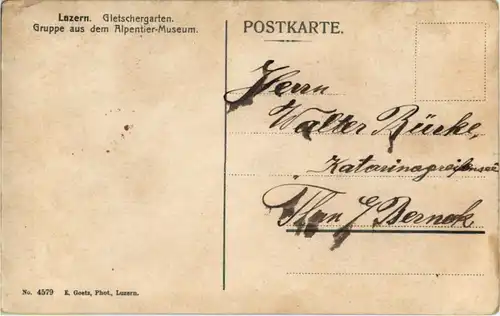 Luzern. Gletschergarten.
Gruppe aus dem Alpentier-Museum.
POSTKARTE.
Herrn
Walter Bürke,
Berneck
No. 4579 E. Goetz, Phot., Luzern.